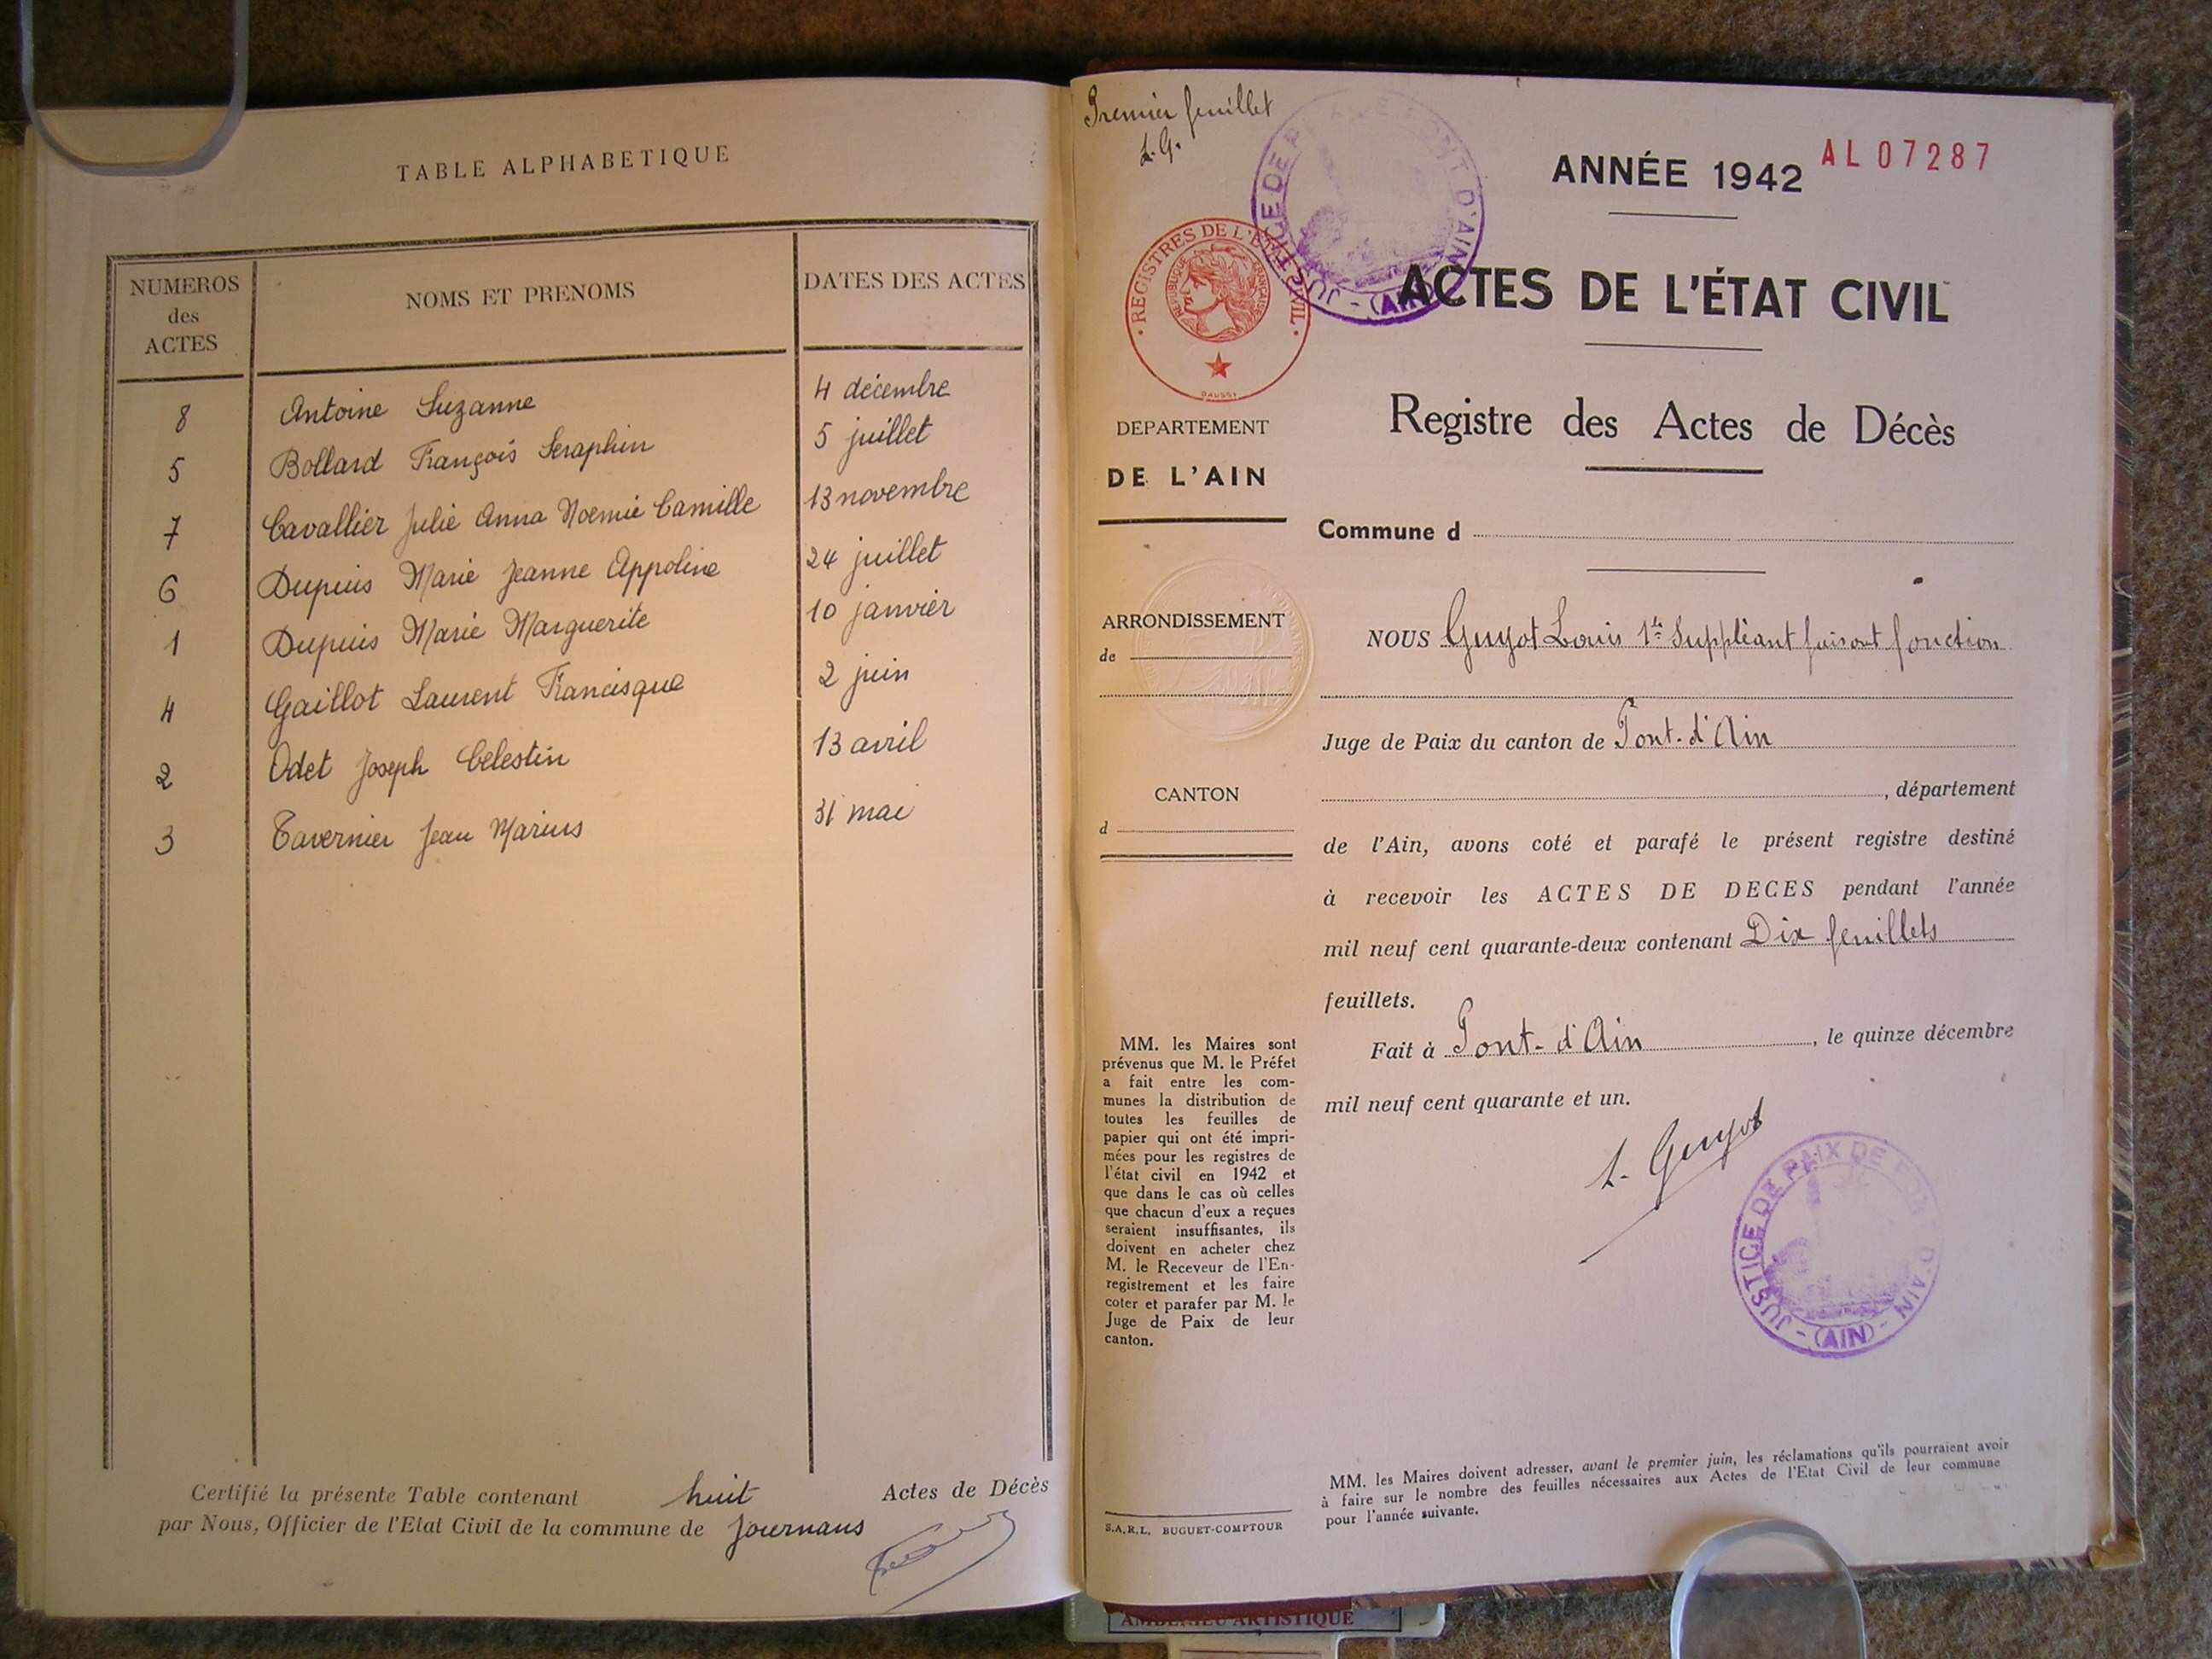 TABLE ALPHABETIQUE
NUMEROS
des
ACTES
NOMS ET PRENOMS
DATES DES ACTES
8 Antoine Suzanne 4 décembre
5 Bollard François Séraphin 5 juillet
7 Cavallier Julie Anna Noemie Camille 13 novembre
6 Dupuis Marie Jeanne Appoline 24 juillet
1 Dupuis Marie Marguerite 10 janvier
4 Gaillot Laurent Francisque 2 juin
2 Odet Joseph Célestin 13 avril
3 Tavernier Jean Marius 31 mai
Certifié la présente Table contenant huit Actes de Décès
par Nous, Officier de l'Etat Civil de la commune de Journans
Premier feuillet
L. G.
JUSTICE DE PAIX DE PONT D'AIN - (AIN) -
ANNÉE 1942
AL07287
· REGISTRES DE L'ÉTAT CIVIL ·
REPUBLIQUE FRANÇAISE
DAUSSY
ACTES DE L'ÉTAT CIVIL
Registre des Actes de Décès
DEPARTEMENT
DE L'AIN
Commune d
ARRONDISSEMENT
de
CANTON
d
NOUS Guyot Louis 1er Suppléant faisant fonction
Juge de Paix du canton de Pont-d'Ain
, département
de l'Ain, avons coté et parafé le présent registre destiné
à recevoir les ACTES DE DECES pendant l'année
mil neuf cent quarante-deux contenant Dix feuillets
feuillets.
Fait à Pont-d'Ain, le quinze décembre
mil neuf cent quarante et un.
L. Guyot
JUSTICE DE PAIX DE PONT D'AIN - (AIN) -
MM. les Maires sont
prévenus que M. le Préfet
a fait entre les com-
munes la distribution de
toutes les feuilles de
papier qui ont été impri-
mées pour les registres de
l'état civil en 1942 et
que dans le cas où celles
que chacun d'eux a reçues
seraient insuffisantes, ils
doivent en acheter chez
M. le Receveur de l'En-
registrement et les faire
coter et parafer par M. le
Juge de Paix de leur
canton.
S.A.R.L. BUGUET-COMPTOUR
MM. les Maires doivent adresser, avant le premier juin, les réclamations qu'ils pourraient avoir
à faire sur le nombre des feuilles nécessaires aux Actes de l'Etat Civil de leur commune
pour l'année suivante.
ARTISTIQUE